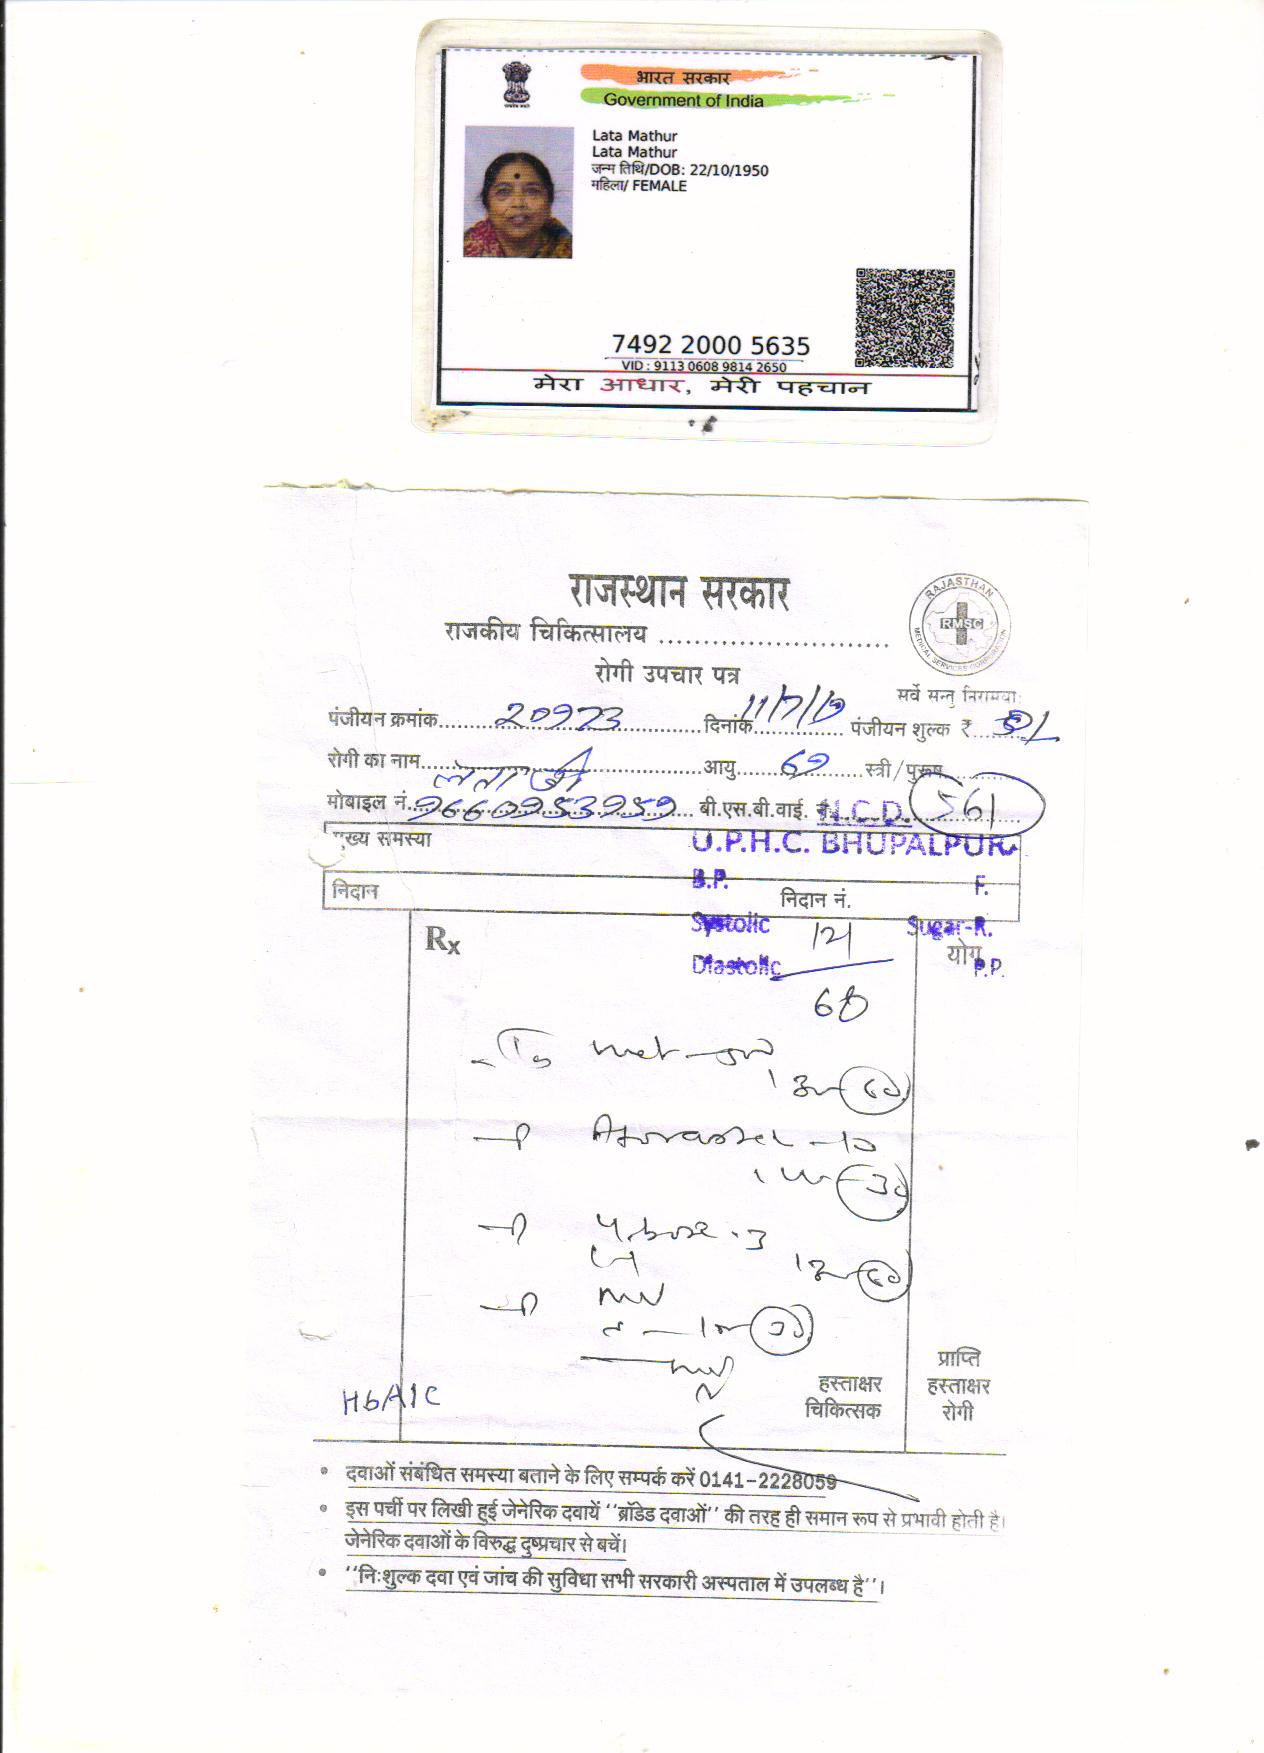 भारत सरकार
Government of India
Lata Mathur
Lata Mathur
जन्म तिथि/DOB: 22/10/1950
महिला/ FEMALE
7492 2000 5635
VID : 9113 0608 9814 2650
मेरा आधार, मेरी पहचान
राजस्थान सरकार
राजकीय चिकित्सालय
RAJASTHAN
RMSC
MEDICAL SERVICES CORPORATION
रोगी उपचार पत्र
सर्वे सन्तु निरामयाः
पंजीयन क्रमांक 20973 दिनांक 11/7/19 पंजीयन शुल्क ₹
रोगी का नाम लता जी आयु 69 स्त्री/पुरूष
मोबाइल नं. 9660953959 बी.एस.बी.वाई. नं. N.C.D. 561
मुख्य समस्या U.P.H.C. BHUPALPUR
B.P. F.
निदान निदान नं.
Rx Systolic 121 Sugar-R.
योग
Diastolic P.P.
60
met
60
-10
30
60
30
हस्ताक्षर
चिकित्सक
प्राप्ति
हस्ताक्षर
रोगी
HbA1C
• दवाओं संबंधित समस्या बताने के लिए सम्पर्क करें 0141-2228059
• इस पर्ची पर लिखी हुई जेनेरिक दवायें ''ब्रॉडेड दवाओं'' की तरह ही समान रूप से प्रभावी होती है।
जेनेरिक दवाओं के विरुद्ध दुष्प्रचार से बचें।
• ''निःशुल्क दवा एवं जांच की सुविधा सभी सरकारी अस्पताल में उपलब्ध है''।